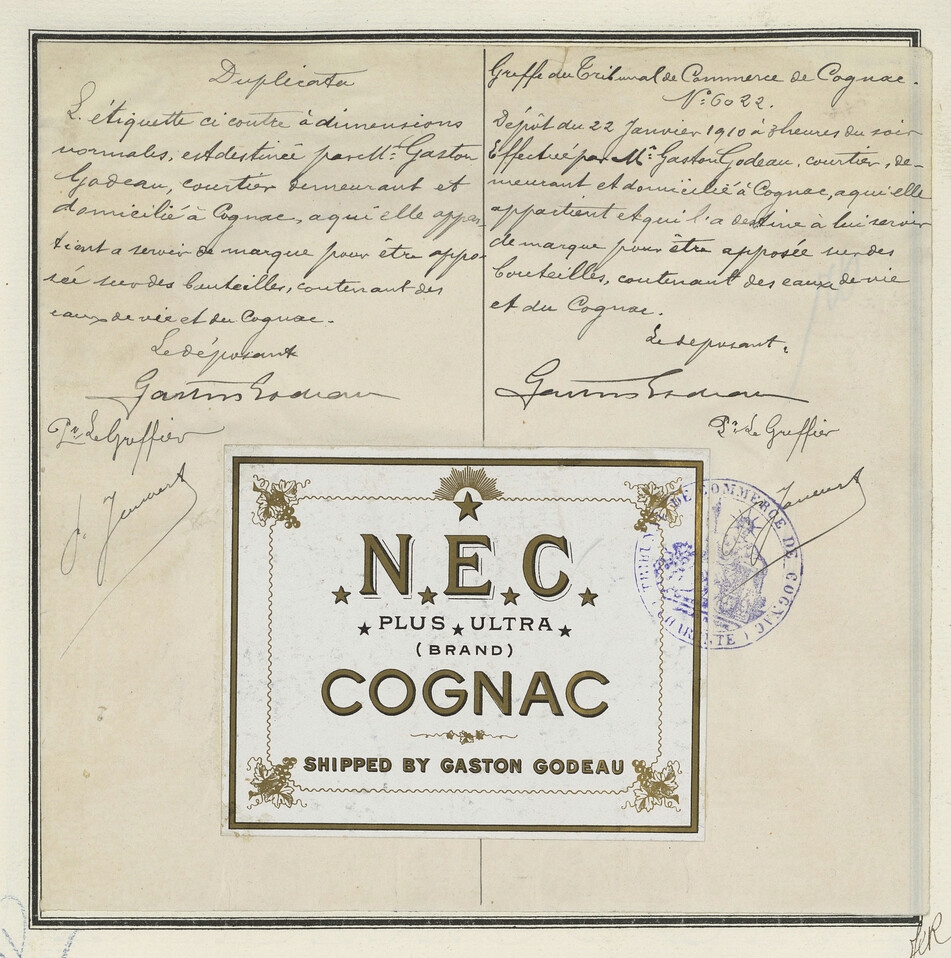 Duplicata
L'étiquette ci contre à dimensions
normales, est destinée par Mr. Gaston
Godeau, courtier demeurant et
domicilié à Cognac, a qui elle appar-
tient a servir de marque pour être appo-
sée sur des bouteilles, contenant des
eaux de vie et du Cognac.
Le déposant
Gaston Godeau
Pr. Le Greffier
Greffe du Tribunal de Commerce de Cognac.
No: 6022.
Dépôt du 22 Janvier 1910 à 3 heures du soir
Effectué par Mr. Gaston Godeau, courtier, de-
meurant et domicilié à Cognac, a qui elle
appartient et qui l'a destine à lui servir
de marque pour être apposée sur des
bouteilles, contenant des eaux de vie
et du Cognac.
Le déposant.
Gaston Godeau
Pr. Le Greffier
N.E.C.
PLUS ULTRA
(BRAND)
COGNAC
SHIPPED BY GASTON GODEAU
TRIBUNAL DE COMMERCE DE COGNAC
(CHARENTE)